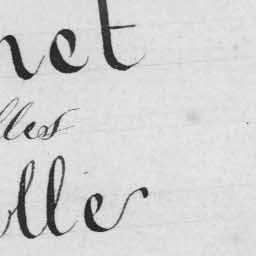 net
lles
olle